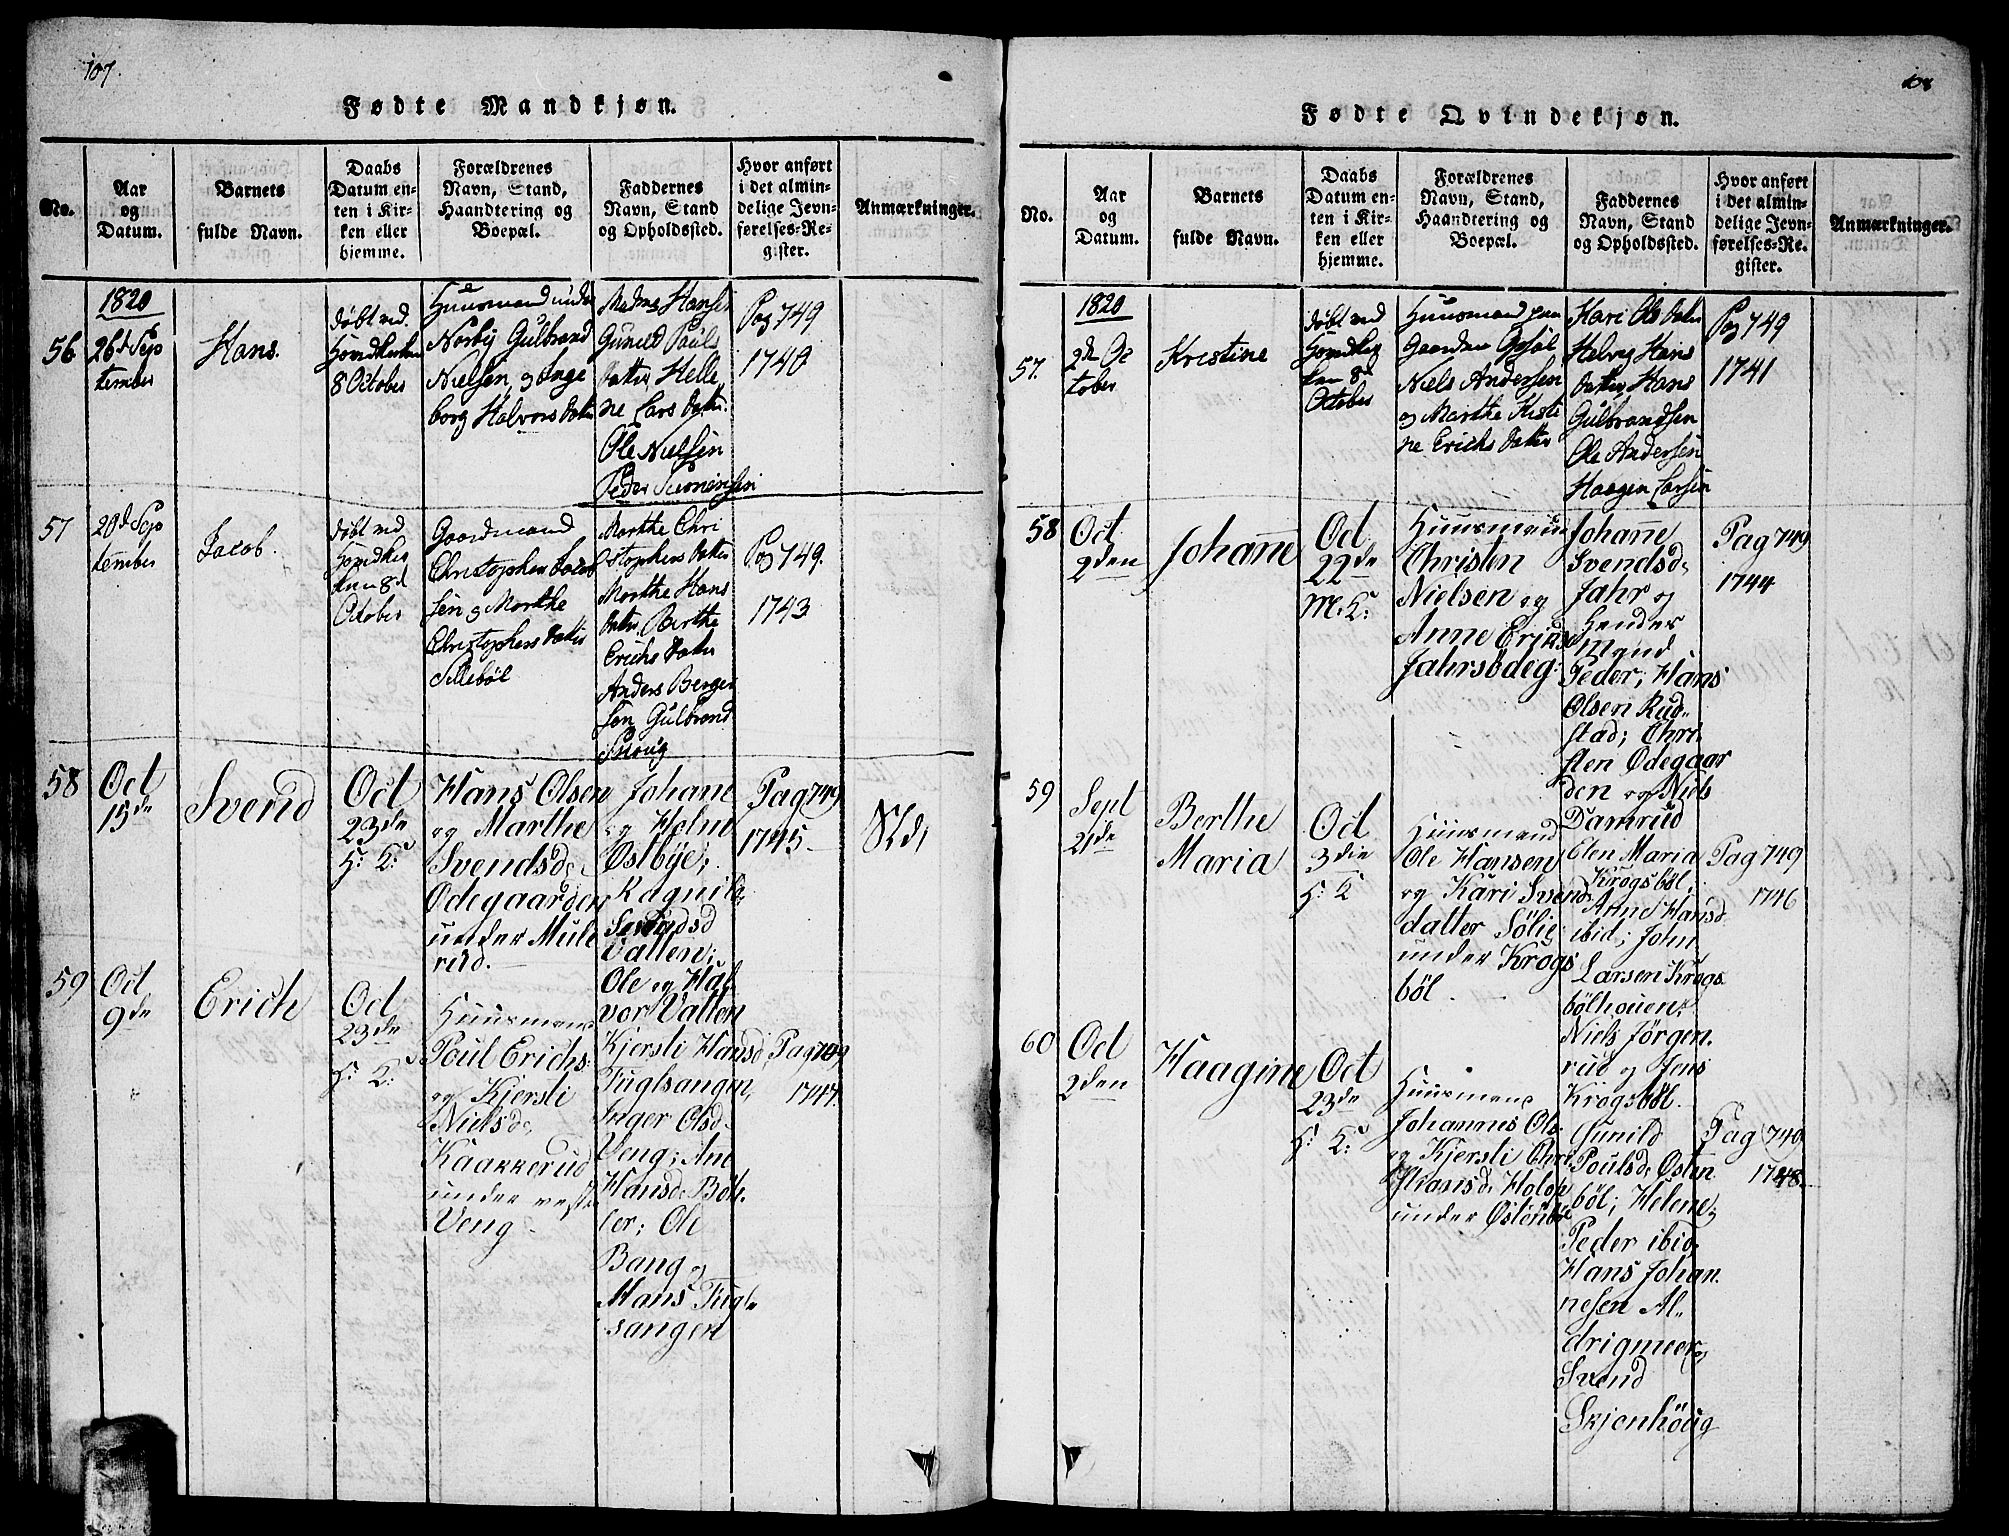 107.
Fødte Mandkjøn.
No.
Aar
og
Datum.
Barnets
fulde Navn.
Daabs
Datum en-
ten i Kir-
ken eller
hjemme.
Forældrenes
Navn, Stand,
Haandtering og
Boepæl.
Faddernes
Navn, Stand
og Opholdssted.
Hvor anført
i det almin-
delige Jevn-
førelses-Re-
gister.
Anmærkninger.
56
1820
26d Sep
tember
Hans.
døbt ved
8 October
Huusmand under
Norby Gulbrand
Nielsen, og Inge
borg Halvors datter
Hansen
Gunild Pouls
datter, Helle
ne Lars datter
Ole Nielsen
Peder
Pag 749
1740
57
20d Sep
tember
Jacob.
døbt ved
8d
October
Gaardmand
Christopher Jacob
sen og Marthe
Christophers datter
Sillebøl
Marthe Chri
stophers datter
Marthe Hans
datter, Berthe
Erichs datter
Anders Berger
sen Gulbrand
Pag 749.
1743
58
Oct
15de
Svend
Oct
23de
H: K:
Hans Olsen
og Marthe
Svendsd:
Ødegaarden
under Mule
rud.
Johane
og Helne
Østbye;
Ragnild
Svendsd
Vatten;
Ole og Hal
vor Vatten
Pag 749
1745
59
Oct
9de
Erich
Oct
23de
H: K:
Huusmand
Poul Erichs:
og Kjersti
Nielsd:
Kaakkerud
under vestre
Veng
Kjersti Hansd,
Fuglsangen,
Inger Olsd.
Veng; Ane
Hansd: Böh
ler; Ole
Bang og
Hans Fugl
sangen
Pag 749
1747.
108
Fødte Qvindekjøn.
No.
Aar
og
Datum.
Barnets
fulde Navn.
Daabs
Datum en-
ten i Kir-
ken eller
hjemme.
Forældrenes
Navn, Stand,
Haandtering og
Boepæl.
Faddernes
Navn, Stand
og Opholdssted.
Hvor anført
i det almin-
delige Jevn-
førelses-Re-
gister.
Anmærkninger.
57.
1820
2de Oc
tober
Kristine
døbt ved
ken 8d
October
Huusmand paa
Gaarden Opsøl
Niels Andersen
og Marthe Kisti
ne Erichs datter
Kari Ols datter
Helvig Hans
datter, Hans
Gulbrandsen
Ole Andersen
Haagen Larsen
Pag 749
1741
58
Oct
2den
Johanne
Oct
22de
M: K:
Huusmand
Christen
Nielsen og
Anne Erichs
Jahrsødeg:
Johanne
Svendsd.
Jahr og
Hendes
Mand
Peder; Hans
Olsen Rud-
stad; Chri
sten Ødegaar
den og Niels
Damrud
Pag 749
1744
59
Sept
21de
Berthe
Maria
Oct
3die
H: K
Huusmand
Ole Hansen
og Kari Svends
datter Sölie
under Krogs
böl
Olen Maria
Krogsböl.
Anne Hansd
ibid; John
Larsen Krogs
bölhouen;
Niels Jörgen
rud og Jens
Krogsböl.
Pag 749
1746
60
Oct
2den
Haagine
Oct
23de
H: K:
Huusmand
Johannes Ols:
og Kjersti Chri
stiansd: Holop
under Østenböl
Gunild
Poulsd: Østen
böl; Helene,
Peder ibid,
Hans Johan
nesen Al-
drigmeer,
Svend
Skjenhöug
Pag 749
1748.